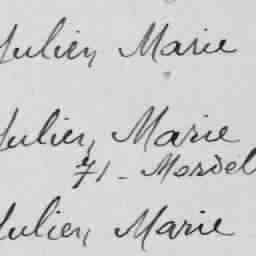 Julien, Marie
Julien, Marie
71 - Mordel
Julien, Marie